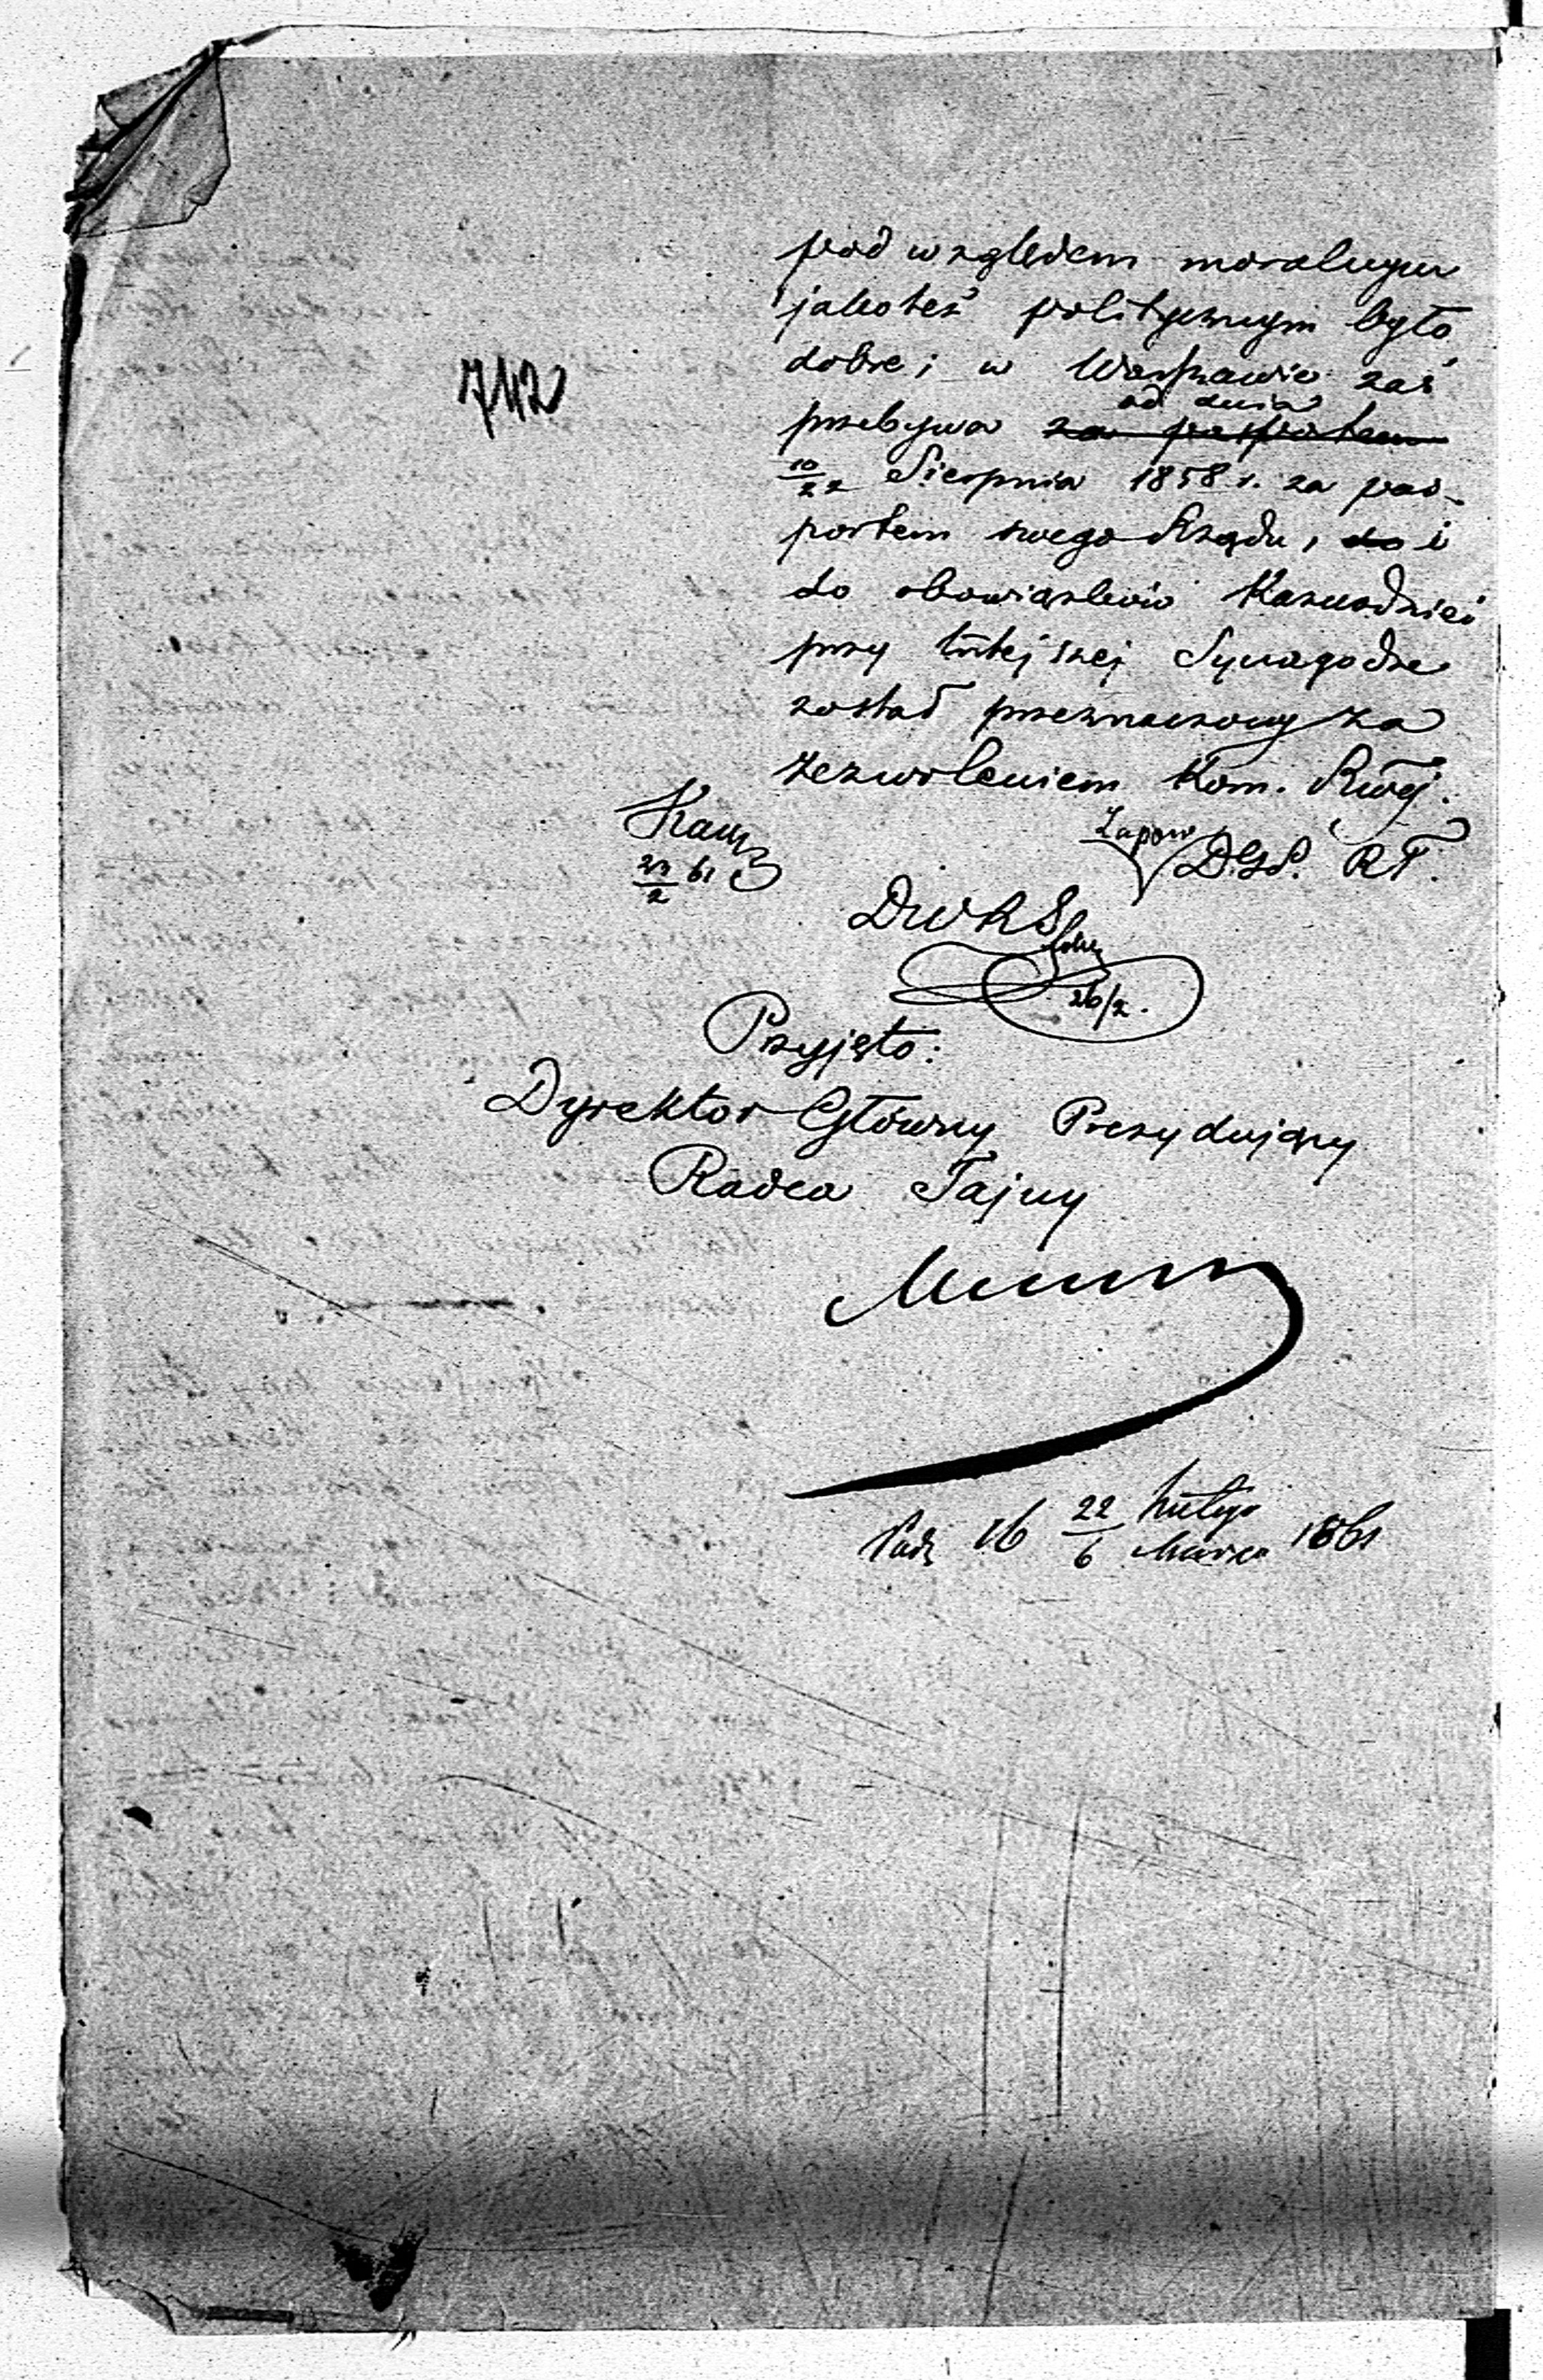 pod względem moralnym
jakoteż politycznym było
742
dobre; w Warszawie zaś
od dnia
przebywa za paszportem
10/22 Sierpnia 1858 r. za pas-
portem swego Rządu, do i
do obowiązków Kaznodziei
przy tutejszej Synagodze
został przeznaczony za
zezwoleniem Kom. Rząd.
2/61
DWRS
26/2.
Przyjęto:
Dyrektor Główny Prezydujący
Radca Tajny
16 22/6 Lutego/Marca 1861